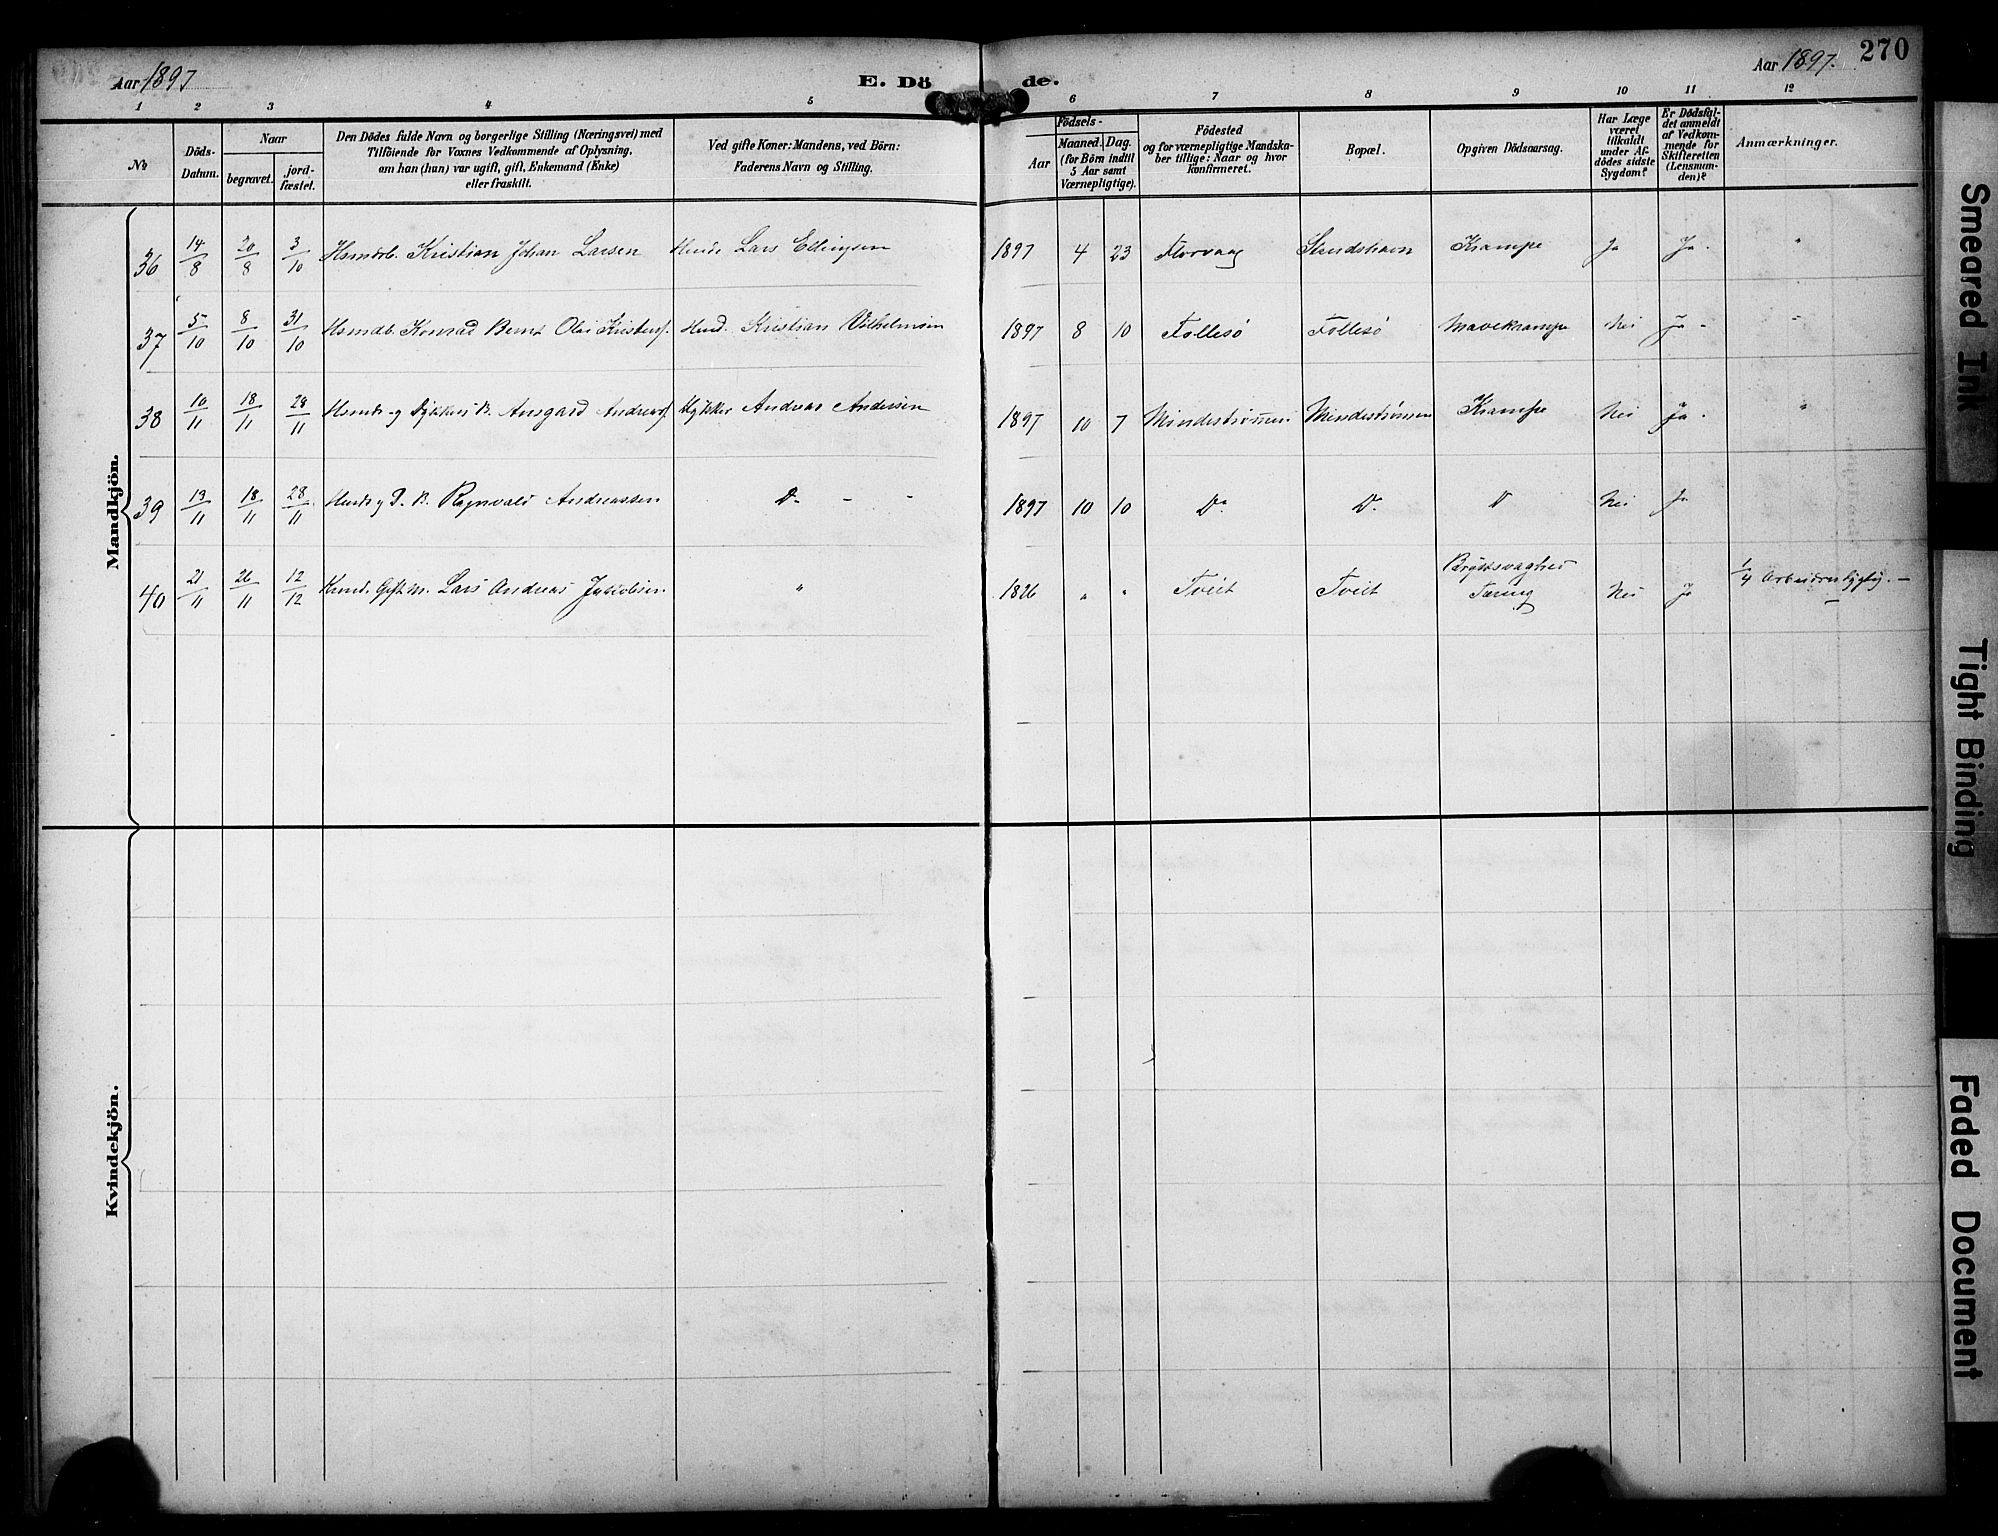 Aar 1897 E. Dö de. Aar 1897. 270
1 2 3 4 5 6 7 8 9 10 11 12
№
Döds-
Datum.
Naar
begravet.
jord-
fæstet.
Den Dödes fulde Navn og borgerlige Stilling (Næringsvei) med
Tilföiende for Voxnes Vedkommende af Oplysning,
om han (hun) var ugift, gift, Enkemand (Enke)
eller fraskilt.
Ved gifte Koner: Mandens, ved Börn:
Faderens Navn og Stilling.
Födsels-
Aar
Maaned. Dag.
(for Börn indtil
5 Aar samt
Værnepligtige).
Födested
og for værnepligtige Mandska-
ber tillige: Naar og hvor
konfirmeret.
Bopæl.
Opgiven Dödsaarsag.
Har Læge
været
tilkaldt
under Af-
dödes sidste
Sygdom?
Er Dödsfal-
det anmeldt
af Vedkom-
mende for
Skifteretten
(Lensman-
den)?
Anmærkninger.
Mandkjön.
36 14/8 20/8 3/10 Kristian Johan Larsen Lars Ellingsen 1897 4 23 Florvaag Krampe Ja Ja. "
37 5/10 8/10 31/10 Konrad Bernt Olai Kristian Vilhelmsen 1897 8 10 Follesö Follesö Mavekrampe Nei Ja. "
38 10/11 18/11 28/11 Ansgard Andreas Andersen 1897 10 7 Krampe Nei Ja. "
39 13/11 18/11 28/11 Ragnvald Andreassen Do - - 1897 10 10 Do Do Do Nei Ja
40 21/11 26/11 12/12 Gift M. Lars Andreas Jakobsen " 1826 " " Tveit Tveit Brystsvaghed Nei Ja 1/4
Tæring
Kvindekjön.
Smeared Ink
Tight Binding
Faded Document